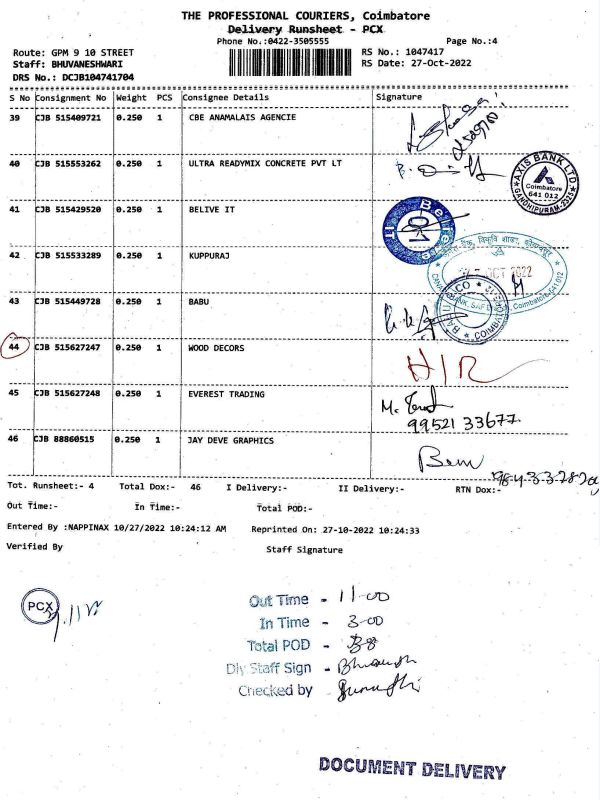 THE PROFESSIONAL COURIERS, Coimbatore
Delivery Runsheet - PCX
Phone No.:0422-3505555 Page No.:4
Route: GPM 9 10 STREET RS No.: 1047417
Staff: BHUVANESHWARI RS Date: 27-Oct-2022
DRS No.: DCJB104741704
S No Consignment No Weight PCS Consignee Details Signature
39 CJB 515409721 0.250 1 CBE ANAMALAIS AGENCIE
40 CJB 515553262 0.250 1 ULTRA READYMIX CONCRETE PVT LT
AXIS BANK LTD
Coimbatore
641 012
GANDHIPURAM-2535
41 CJB 515429520 0.250 1 BELIVE IT
42 CJB 515533289 0.250 1 KUPPURAJ
OCT 2022
43 CJB 515449728 0.250 1 BABU
44 CJB 515627247 0.250 1 WOOD DECORS
H/R
45 CJB 515627248 0.250 1 EVEREST TRADING
99521 33677
46 CJB 88860515 0.250 1 JAY DEVE GRAPHICS
Tot. Runsheet:- 4 Total Dox:- 46 I Delivery:- II Delivery:- RTN Dox:-
Out Time:- In Time:- Total POD:-
Entered By :NAPPINAX 10/27/2022 10:24:12 AM Reprinted On: 27-10-2022 10:24:33
Verified By Staff Signature
PCX
Out Time - 11-00
In Time - 3-00
Total POD -
Dly Staff Sign -
Checked by
DOCUMENT DELIVERY